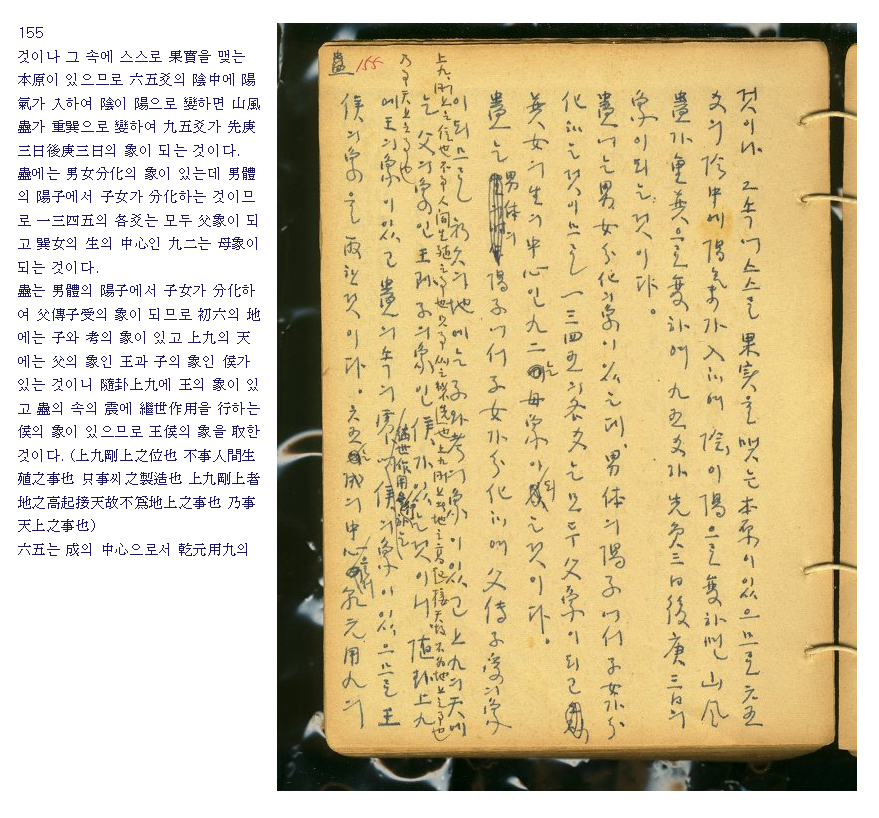 155
것이나 그 속에 스스로 果實을 맺는
本原이 있으므로 六五爻의 陰中에 陽
氣가 入하여 陰이 陽으로 變하면 山風
蠱가 重巽으로 變하여 九五爻가 先庚
三日後庚三日의 象이 되는 것이다.
蠱에는 男女分化의 象이 있는데 男體
의 陽子에서 子女가 分化하는 것이므
로 一三四五의 各爻는 모두 父象이 되
고 巽女의 生의 中心인 九二는 母象이
되는 것이다.
蠱는 男體의 陽子에서 子女가 分化하
여 父傳子受의 象이 되므로 初六의 地
에는 子와 考의 象이 있고 上九의 天
에는 父의 象인 王과 子의 象인 侯가
있는 것이니 隨卦上九에 王의 象이 있
고 蠱의 속의 震에 繼世作用을 行하는
侯의 象이 있으므로 王侯의 象을 取한
것이다. (上九剛上之位也 不事人間生
殖之事也 只事씨之製造也 上九剛上者
地之高起接天故不爲地上之事也 乃事
天上之事也)
六五는 成의 中心으로서 乾元用九의
蠱 155
것이나 그 속에 스스로 果実을 맺는 本原이 있으므로 六五
爻의 陰中에 陽気가 入하여 陰이 陽으로 變하면 山風
蠱가 重巽으로 變하여 九五爻가 先庚三日後庚三日의
象이 되는 것이다.
蠱에는 男女分化의 象이 있는데 男体의 陽子에서 子女가 分
化하는 것이므로 一三四五의 各爻는 모두 父象이 되고
巽女의 生의 中心인 九二는 母象이 되는 것이다.
蠱는 男体의 陽子에서 子女가 分化하여 父傳子受의 象
이 되므로 初六의 地에는 子와 考의 象이 있고 上九의 天에
上九剛上之位也不事人間生殖之事也只事씨之製造也上九剛上者地之高起接天故不為地上之事也
는 父의 象인 王과 子의 象인 侯가 있는 것이니 隨卦上九
乃事天上之事也
에 王의 象이 있고 蠱의 속의 震에 繼世作用을 行하는 侯의 象이 있으므로 王
侯의 象을 取한 것이다. 六五는 成의 中心으로서 乾元用九의